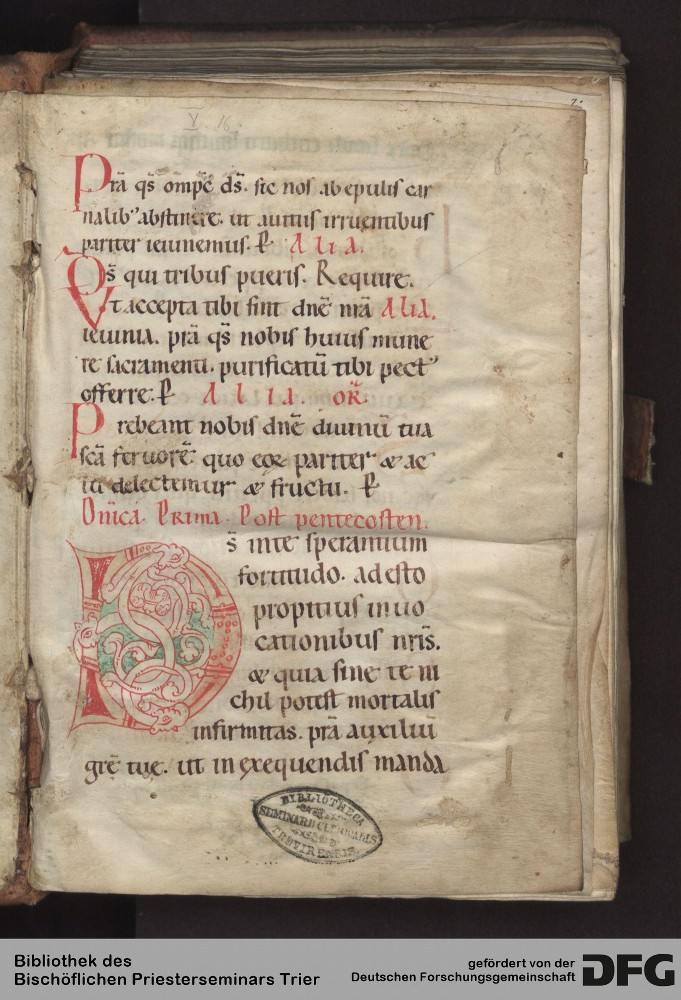 V 16
Prā qs̄ omp̄c ds̄. sic nos ab epulis car
nalib' abstinere. ut a uitiis irruentibus
pariter ieiunemus. P A L I A.
Ds̄ qui tribus pueris. Require.
Vt accepta tibi sint dnē nr̄a ALIA.
ieiunia. prā qs̄ nobis huius mune
re sacramenti. purificatū tibi pect'
offerre. P A L I A. OR̄.
Prebeant nobis dnē diuinū tua
scā feruorē. quo eoꝝ pariter & ac
tu delectemur & fructu. P
Dnīca. Prima. Post pentecosten.
Ds̄ in te sperantium
fortitudo. adesto
propitius inuo
cationibus nrīs.
& quia sine te ni
chil potest mortalis
infirmitas. prā auxiliū
grē tuę. ut in exequendis manda
BIBLIOTHECA
SEMINARII CLERICALIS
TREVIRENSIS
Bibliothek des
Bischöflichen Priesterseminars Trier
gefördert von der
Deutschen Forschungsgemeinschaft
DFG